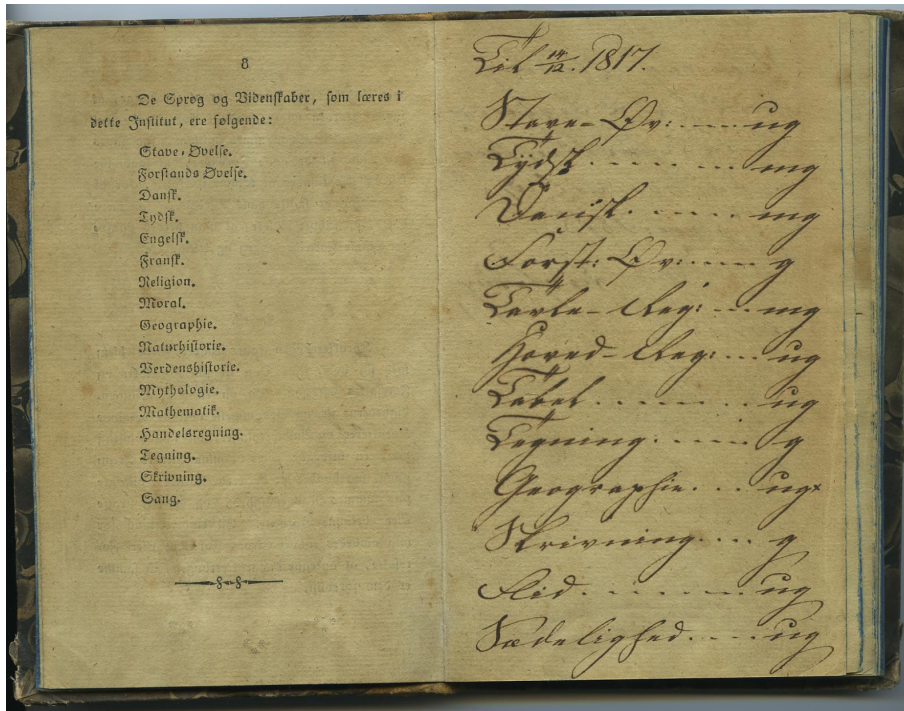 8
De Sprog og Videnskaber, som læres i
dette Institut, ere følgende:
Stave-Øvelse.
Forstands Øvelse.
Dansk.
Tydsk.
Engelsk.
Fransk.
Religion.
Moral.
Geographie.
Naturhistorie.
Verdenshistorie.
Mythologie.
Mathematik.
Handelsregning.
Tegning.
Skrivning.
Sang.
Til 14/12. 1817.
Stave-Øv: ug
Tydsk mg
Dansk mg
Forst: Øv: g
Tavle-Reg: mg
Hoved-Reg: ug
Tabel ug
Tegning g
Geographie ug×
Skrivning g
Flid ug
Sædelighed ug